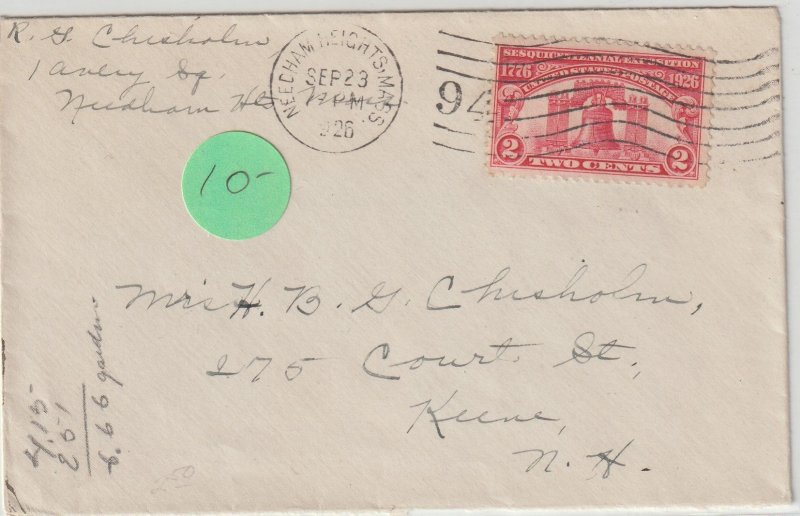 R. G. Chisholm
1 Avery Sq.
Needham Hts Mass
NEEDHAM HEIGHTS. MASS
SEP 23
PM
1926
94
SESQUICENTENNIAL EXPOSITION
1776 1926
UNITED STATES POSTAGE
2 TWO CENTS 2
10-
Mrs H. B. G. Chisholm,
275 Court St,
Keene,
N. H.
4.15
251
6.66 garden
250